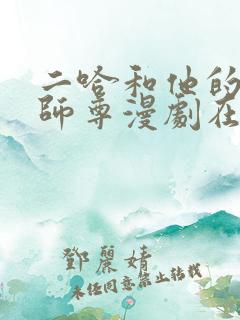 二哈和他的
師尊漫劇在
鄧麗婧
未经同意禁止转载